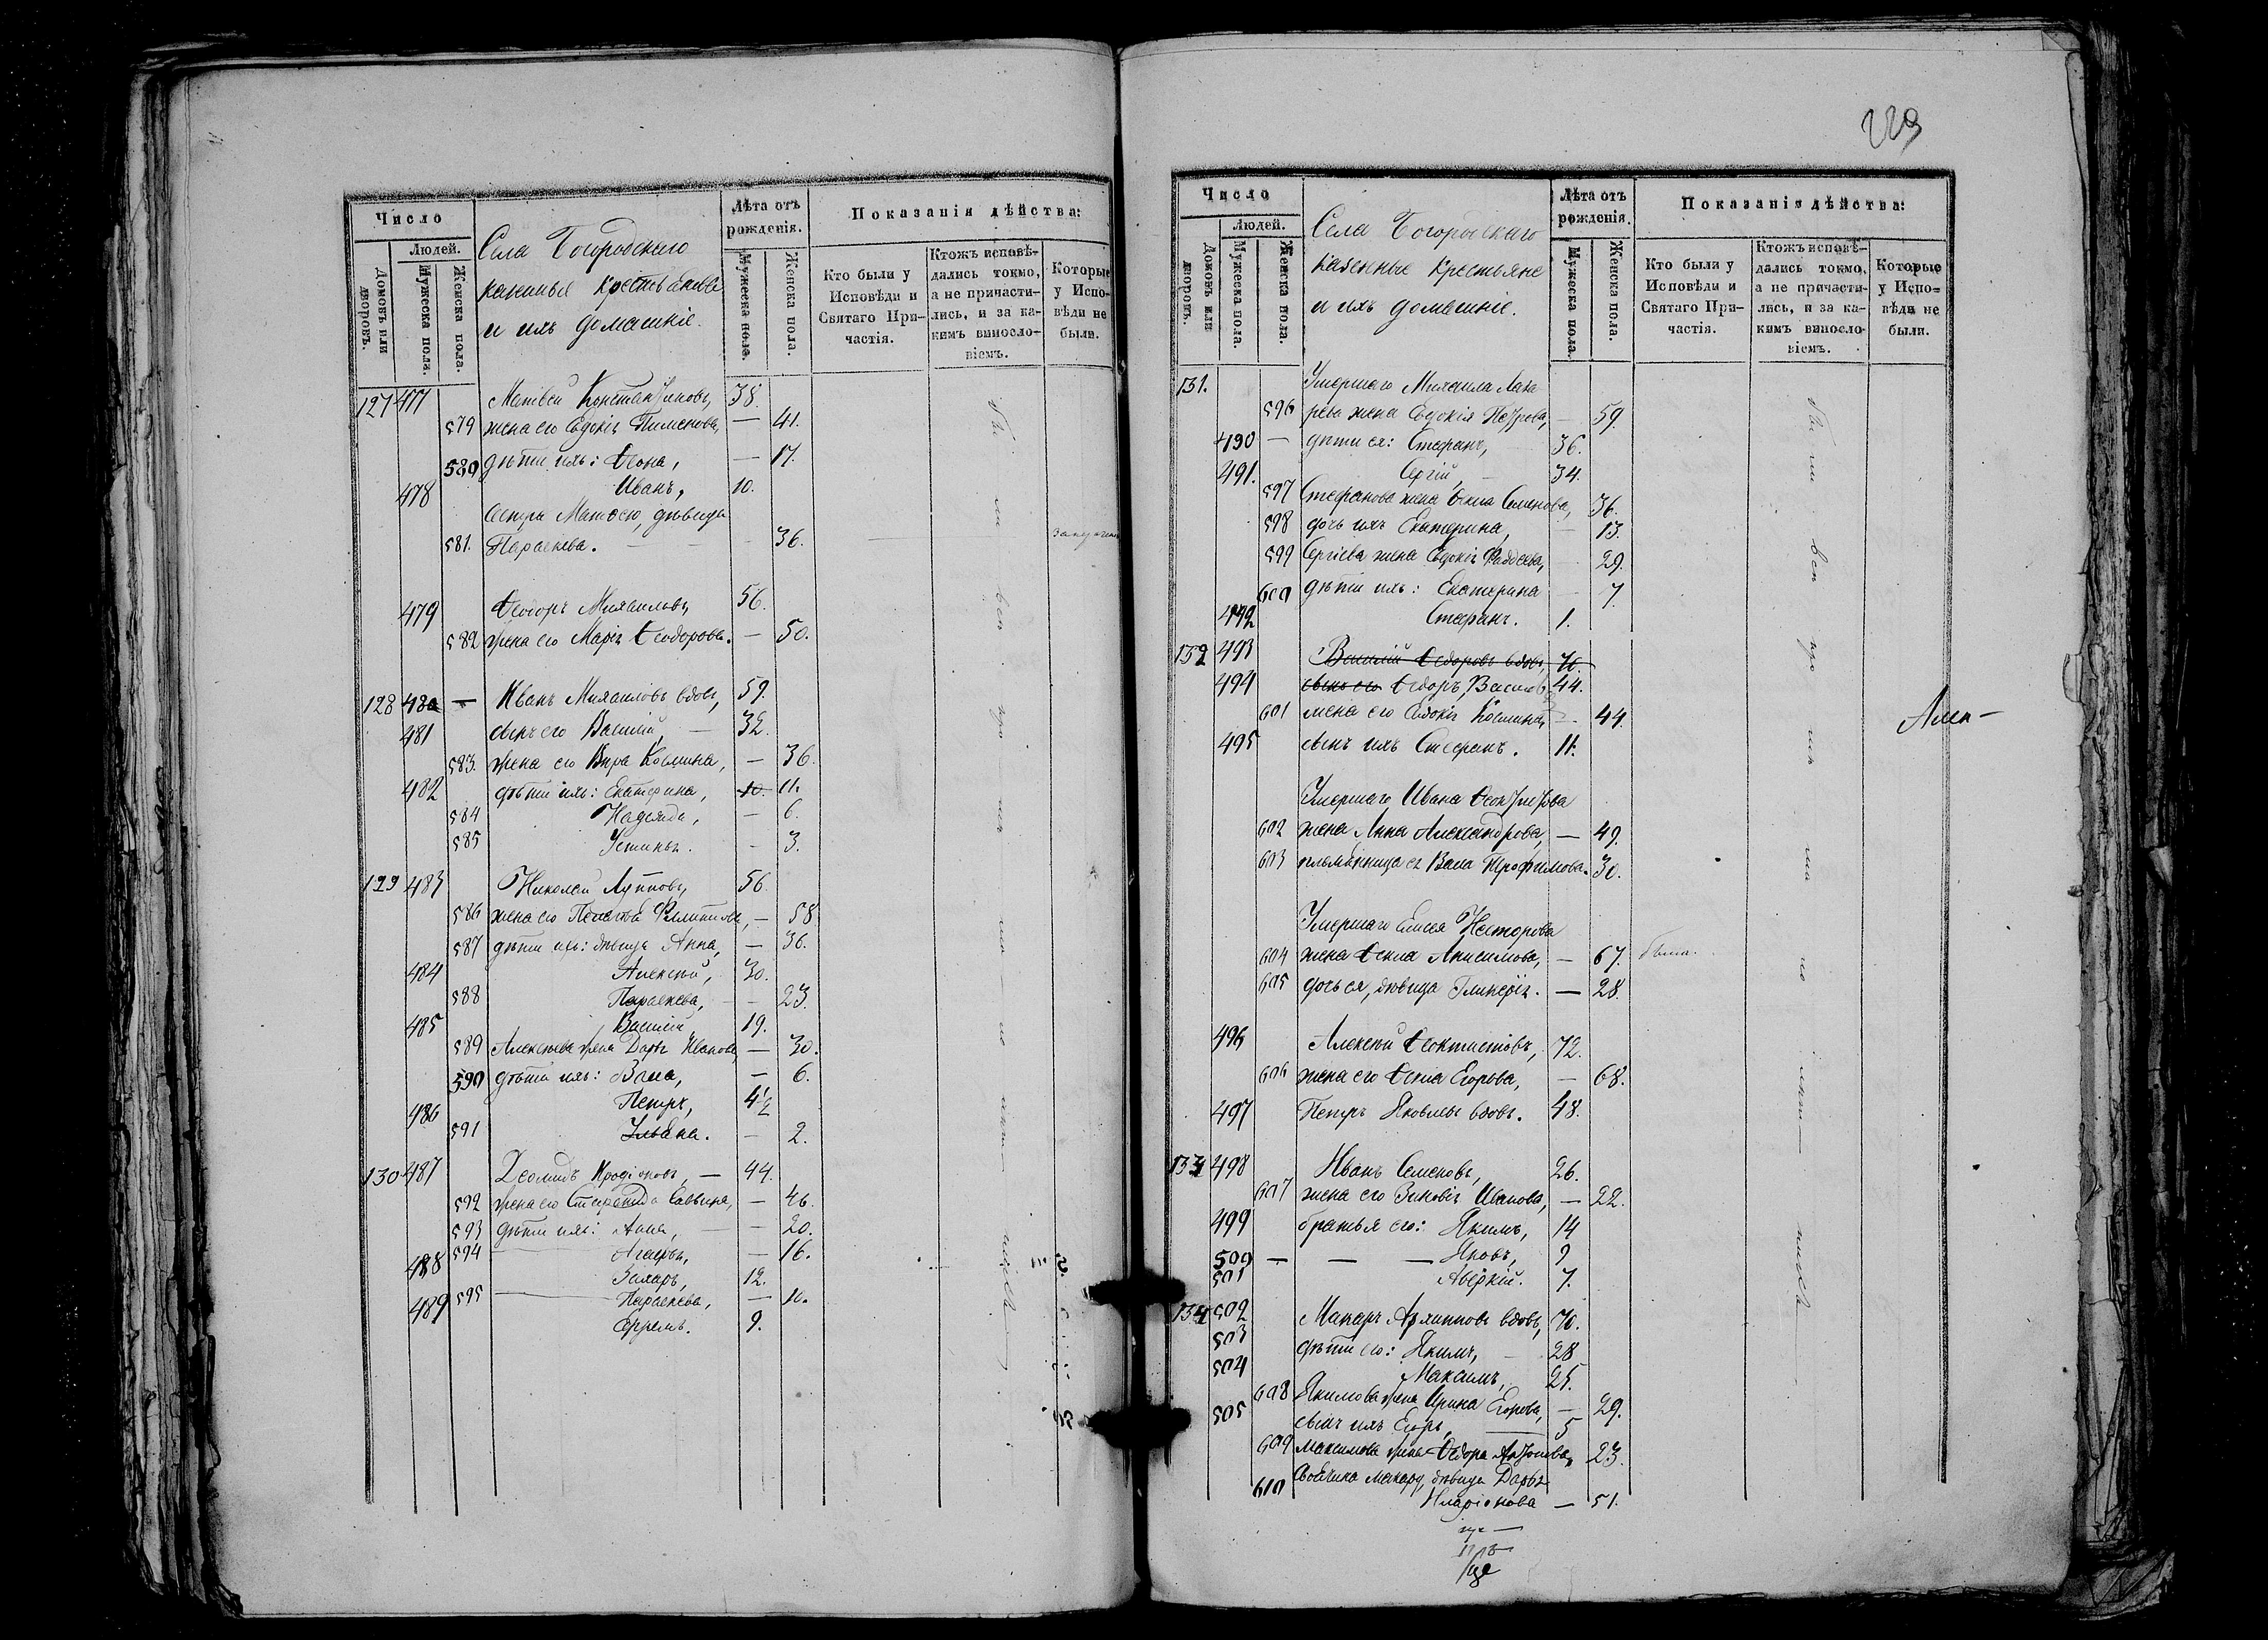 Число
Людей.
Домовъ или дворовъ.
Мужеска пола.
Женска пола.
Села Богородскаго
казенные крестьяне
и ихъ домашніе.
Лѣта отъ рожденія.
Мужеска пола.
Женска пола.
Показанія дѣйства:
Кто были у Исповѣди и Святаго Причастія.
Ктожъ исповѣдались токмо, а не причастились, и за какимъ винословіемъ.
Которые у Исповѣди не были.
127 477 Матвей Константиновъ, 38.
579 жена его Евдокія Пименова, — 41.
580 дѣти ихъ: Ѳеона, — 17.
478 Иванъ, 10.
Сестра Матвею, дѣвица
581. Параскева. — 36.
479 Ѳеодоръ Михаиловъ, 56.
582 жена его Марія Ѳеодорова. — 50.
128 480 — Иванъ Михаиловъ вдовъ, 59.
481 сынъ его Василій, — 32.
583. жена его Вѣра Космина, — 36.
482 дѣти ихъ: Екатерина, 10. 11.
584 Надежда, — 6.
585 Устинья. — 3.
129 483 Николай Лупповъ, 56.
586 жена его Пелагія Филиппова, — 58
587 дѣти ихъ: дѣвица Анна, — 36.
484 Алексѣй, 30.
588 Параскева, — 23.
485 Василій 19.
589 Алексѣева жена Дарья Иванова, — 30.
590 дѣти ихъ: Васса, — 6.
486 Петръ, 4½
591 Ульяна. — 2.
130 487 Деомидъ Иродіоновъ, — 44.
592 жена его Степанида Саввина, — 46.
593 дѣти ихъ: Анна, — 20.
594 Агафья, — 16.
488 Захаръ, 12.
595 Параскева, — 10.
489 Ефремъ. 9.
229
Число
Людей.
Домовъ или дворовъ.
Мужеска пола.
Женска пола.
Села Богородскаго
казенные крестьяне
и ихъ домашніе.
Лѣта отъ рожденія.
Мужеска пола.
Женска пола.
Показанія дѣйства:
Кто были у Исповѣди и Святаго Причастія.
Ктожъ исповѣдались токмо, а не причастились, и за какимъ винословіемъ.
Которые у Исповѣди не были.
131. Умершаго Михаила Лаза
596 рева жена Евдокія Петрова, — 59.
490 — дѣти ея: Стефанъ, 36.
491. Сергій, — 34.
597 Стефанова жена Ѳекла Семенова, 36.
598 дочь ихъ Екатерина, — 13.
599 Сергіева жена Евдокія Фаддеева, 29.
600 дѣти ихъ: Екатерина — 7.
492 Стефанъ. 1.
132 493 Василій Ѳедоровъ вдовъ, 70.
494 сынъ его Ѳедоръ Васильевъ 44.
601 жена его Евдокія Космина, — 44.
495 сынъ ихъ Стефанъ. 11.
Умершаго Ивана Ѳеоктистова
602 жена Анна Александрова, — 49.
603 племянница ея Васса Трофимова. 30.
Умершаго Елисея Нестерова
604 жена Ѳекла Анисимова, — 67. была.
605 дочь ея, дѣвица Гликерія. — 28.
496 Алексѣй Ѳеоктистовъ, 72.
606 жена его Ѳекла Егорова, — 68.
497 Петръ Яковлевъ вдовъ. 48.
133 498 Иванъ Семеновъ, 26.
607 жена его Зиновія Иванова, — 22.
499 братья его: Якимъ, 14
500 — — — Яковъ, 9
501 Аверкій. 7.
134 502 Макаръ Архиповъ вдовъ, 70.
503 дѣти его: Якимъ, — 28
504 Максимъ, 25.
608 Якимова жена Ирина Егорова, — 29.
505 сынъ ихъ Егоръ, 5
609 Максимова жена Ѳедора Антонова, 23.
610 Свойчина Макару, дѣвица Дарья
Иларіонова — 51.